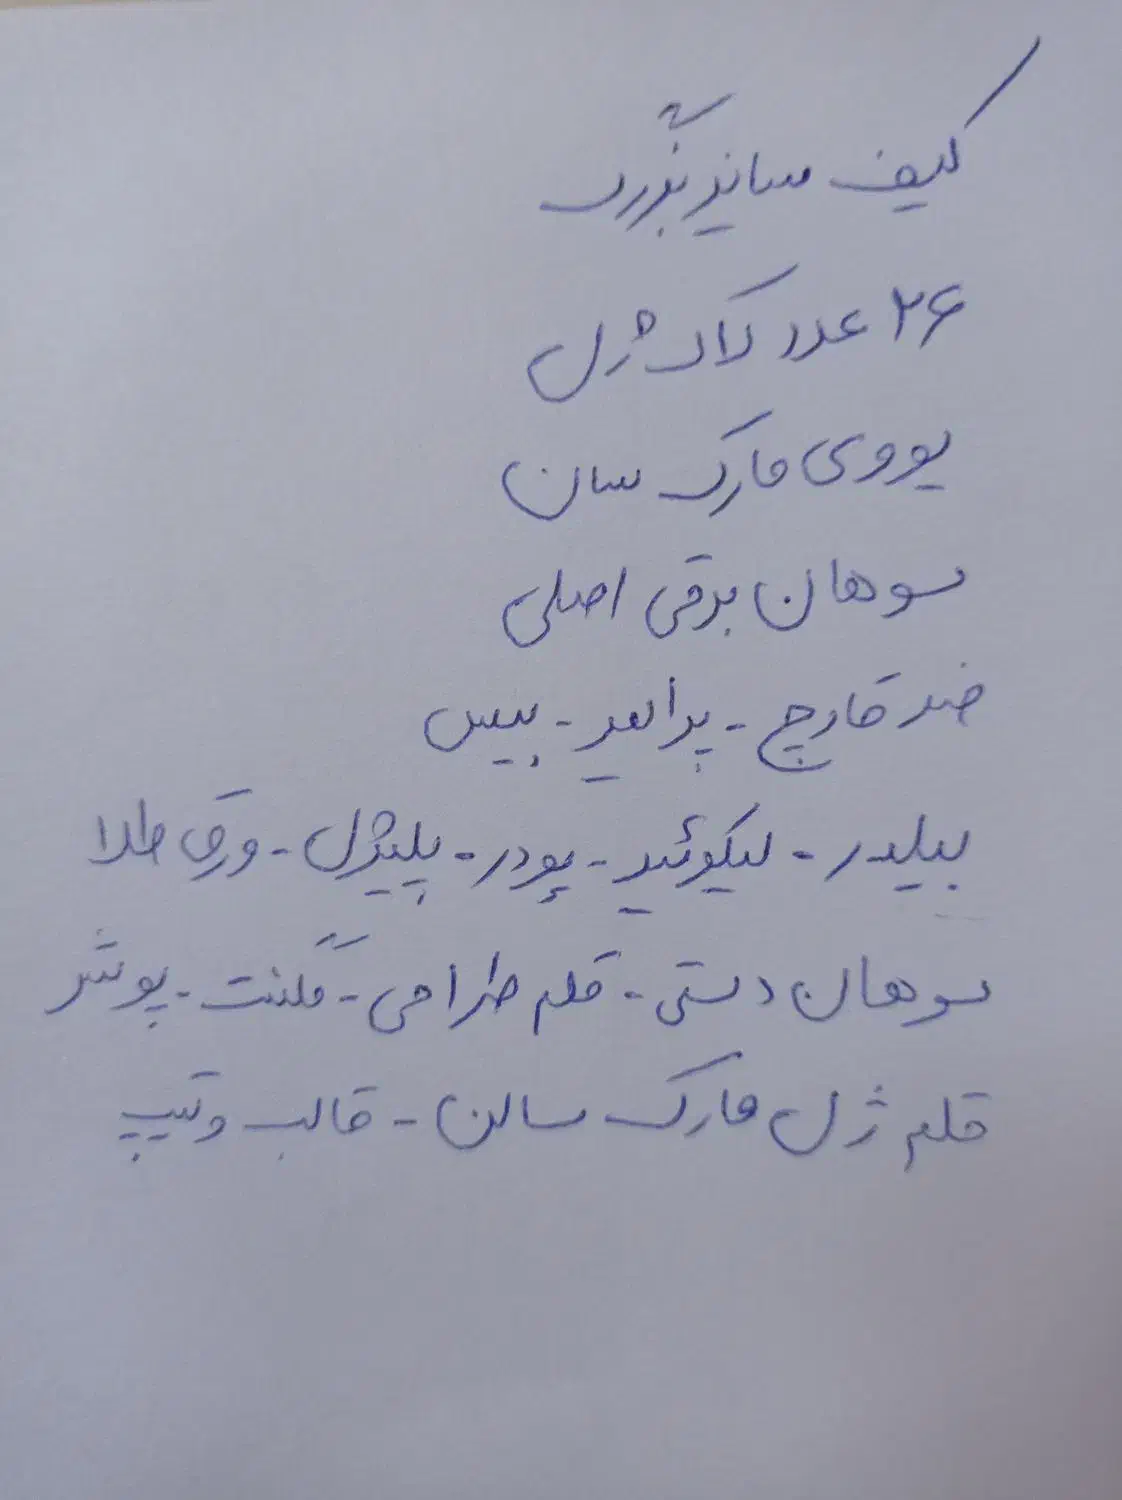 کیف سایز بزرگ
۲۶ عدد لاک ژل
یووی مارک سان
سوهان برقی اصلی
ضد قارچ - پرایمر - بیس
بیلدر - لیکوئید - پودر - پلیژل - ورق طلا
سوهان دستی - قلم طراحی - مگنت - پوشر
قلم ژل مارک سالن - قالب و تیپ